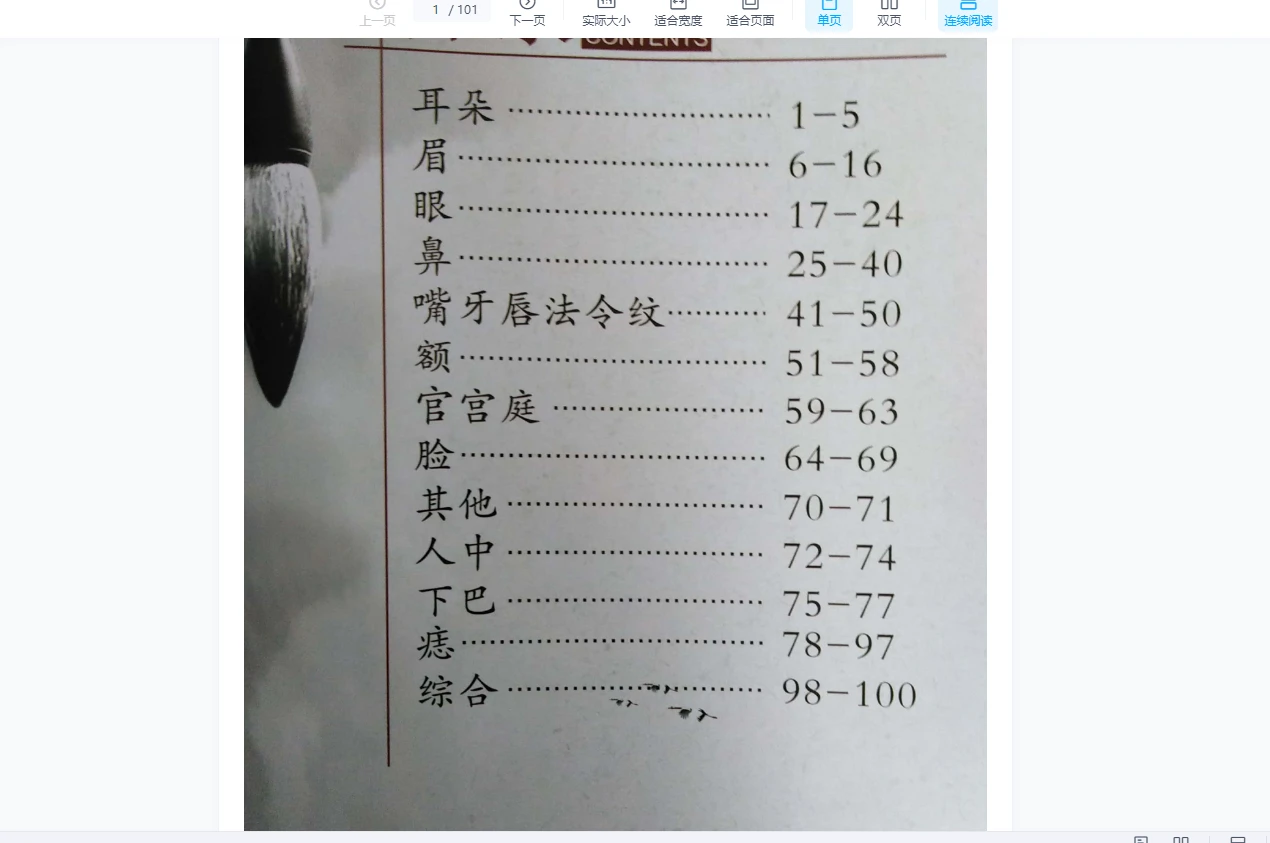 上一页
1 / 101
下一页
1:1
实际大小
适合宽度
适合页面
单页
双页
连续阅读
CONTENTS
耳朵 ………………………… 1-5
眉 ………………………… 6-16
眼 ………………………… 17-24
鼻 ………………………… 25-40
嘴牙唇法令纹 ………… 41-50
额 ………………………… 51-58
官宫庭 ………………… 59-63
脸 ………………………… 64-69
其他 ……………………… 70-71
人中 ……………………… 72-74
下巴 ……………………… 75-77
痣 ………………………… 78-97
综合 ……………………… 98-100